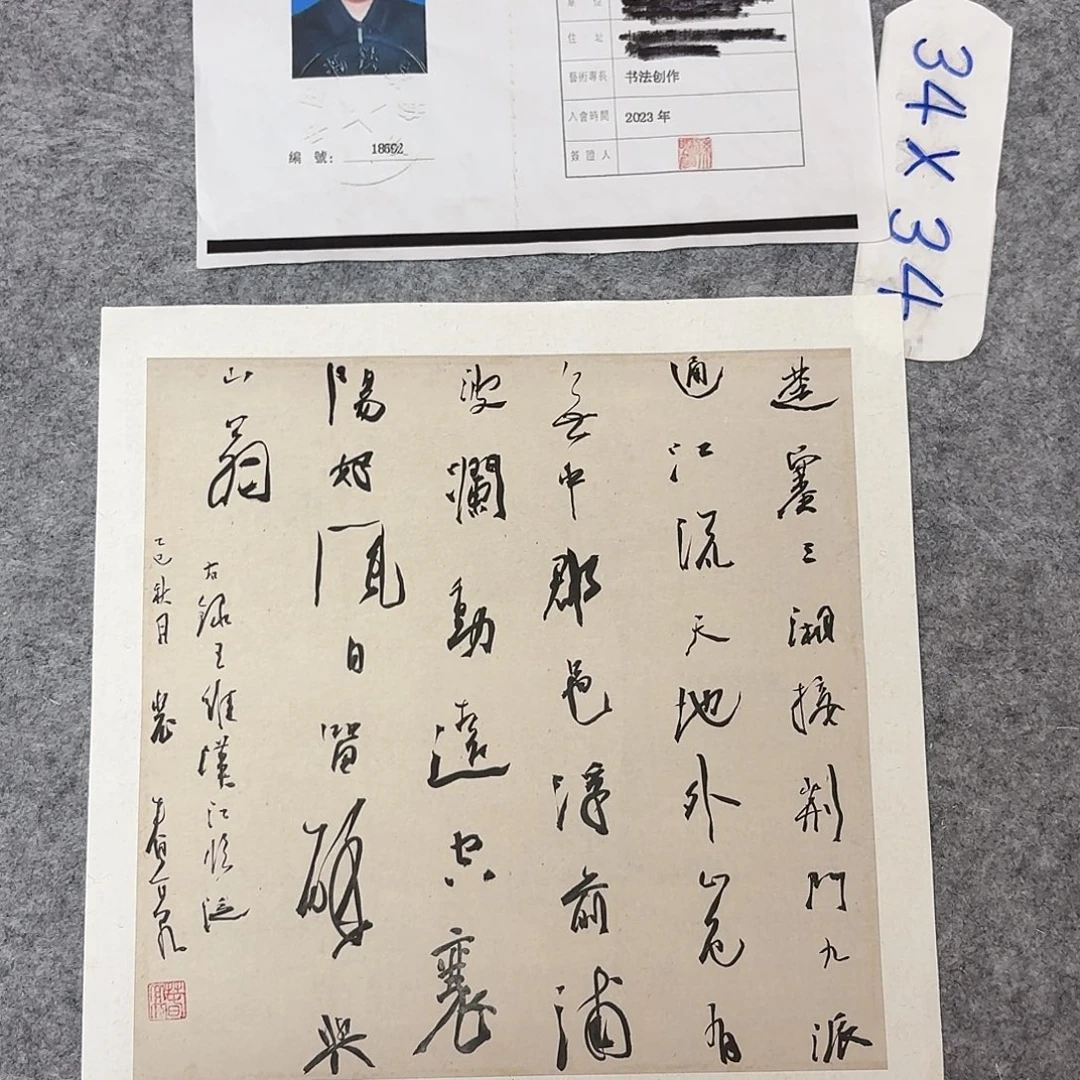 住 址
藝術專長 书法创作
入會時間 2023 年
簽證人
編 號:
34 X 34
楚塞三湘接荆門九派
通江流天地外山色有
無中郡邑浮前浦
波瀾動遠空襄
陽好風日留醉與
山翁
右録王維漢江临泛
乙巳秋月